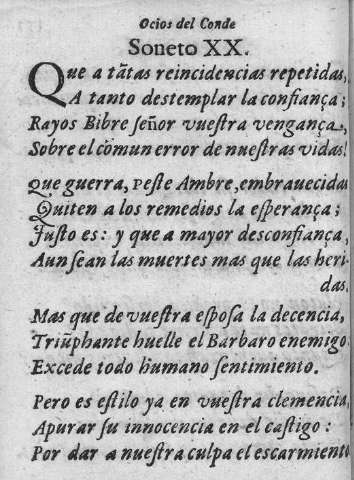 Ocios del Conde
Soneto XX.
Que a tãtas reincidencias repetidas,
A tanto destemplar la confiança;
Rayos Bibre señor vuestra vengança,
Sobre el cõmun error de nuestras vidas!
Que guerra, Peste Ambre, embrauecidas
Quiten a los remedios la esperança;
Justo es: y que a mayor desconfiança,
Aun sean las muertes mas que las heri-
das.
Mas que de vuestra esposa la decencia,
Triũphante huelle el Barbaro enemigo:
Excede todo humano sentimiento.
Pero es estilo ya en vuestra clemencia,
Apurar su innocencia en el castigo:
Por dar a nuestra culpa el escarmiento